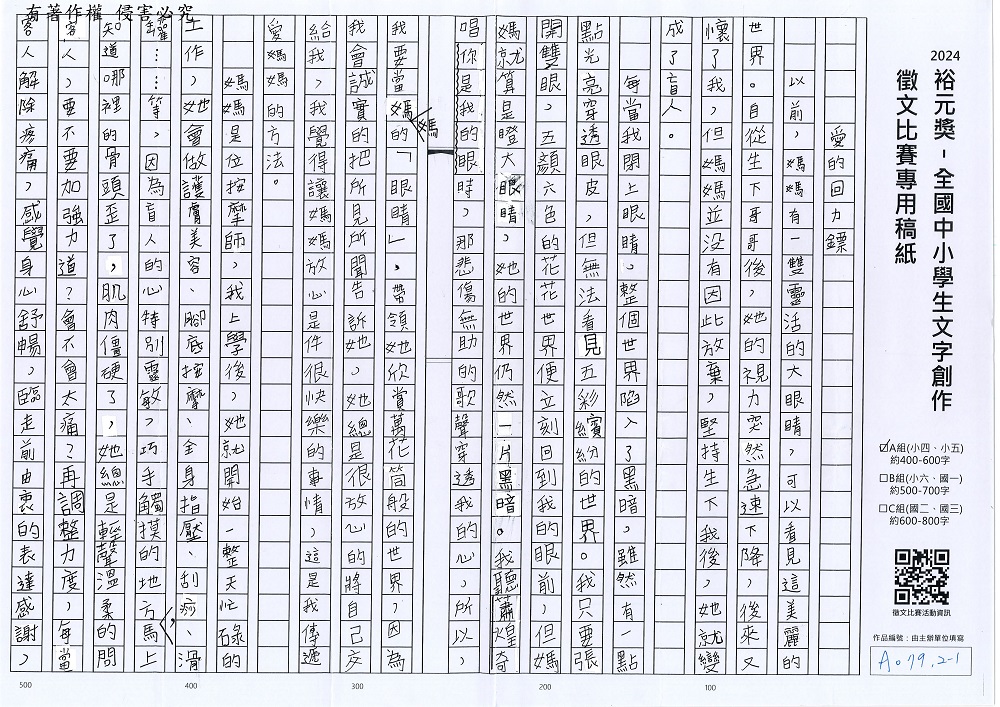 有著作權 侵害必究
2024
裕元獎-全國中小學生文字創作
徵文比賽專用稿紙
☑A組(小四、小五)
約400-600字
□B組(小六、國一)
約500-700字
□C組(國二、國三)
約600-800字
徵文比賽活動資訊
作品編號:由主辦單位填寫
A079.2-1
愛的回力鏢
以前,媽媽有一雙靈活的大眼睛,可以看見這美麗的
世界。自從生下哥哥後,她的視力突然急速下降,後來又
懷了我。但媽媽並沒有因此放棄,堅持生下我後,她就變
成了盲人。
每當我閉上眼睛。整個世界陷入了黑暗。雖然有一點
點光亮穿透眼皮,但無法看見五彩繽紛的世界。我只要張
開雙眼,五顏六色的花花世界便立刻回到我的眼前,但媽
媽就算是瞪大眼睛,她的世界仍然一片黑暗。我聽蕭煌奇
唱你是我的眼時,那悲傷無助的歌聲穿透我的心,所以,
我要當媽媽的「眼睛」,帶領她欣賞萬花筒般的世界,因為
我會誠實的把所見所聞告訴她,她總是很放心的將自己交
給我,我覺得讓媽媽放心是件很快樂的事情,這是我傳遞
愛媽媽的方法。
媽媽是位按摩師,我上學後,她就開始一整天忙碌的
工作,她會做護膚美容、腳底按摩、全身指壓、刮痧、滑
罐……等,因為盲人的心特別靈敏,巧手觸摸的地方,馬上
知道哪裡的骨頭歪了,肌肉僵硬了,她總是輕聲溫柔的問
客人,要不要加強力道?會不會太痛?再調整力度,每當
客人解除疼痛,感覺身心舒暢,臨走前由衷的表達感謝,
100
200
300
400
500